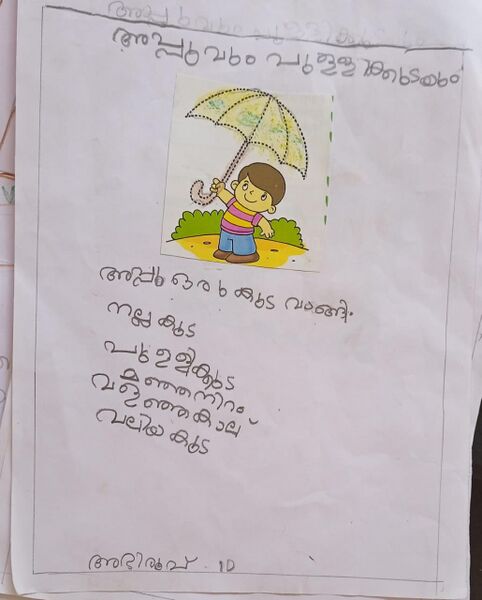 അപ്പുവും പുള്ളിക്കുടയും
അപ്പു ഒരു കുട വാങ്ങി.
നല്ല കുട
പുള്ളിക്കുട
മഞ്ഞനിറം
വളഞ്ഞകാല്
വലിയ കുട
അഭിരൂപ് 1D